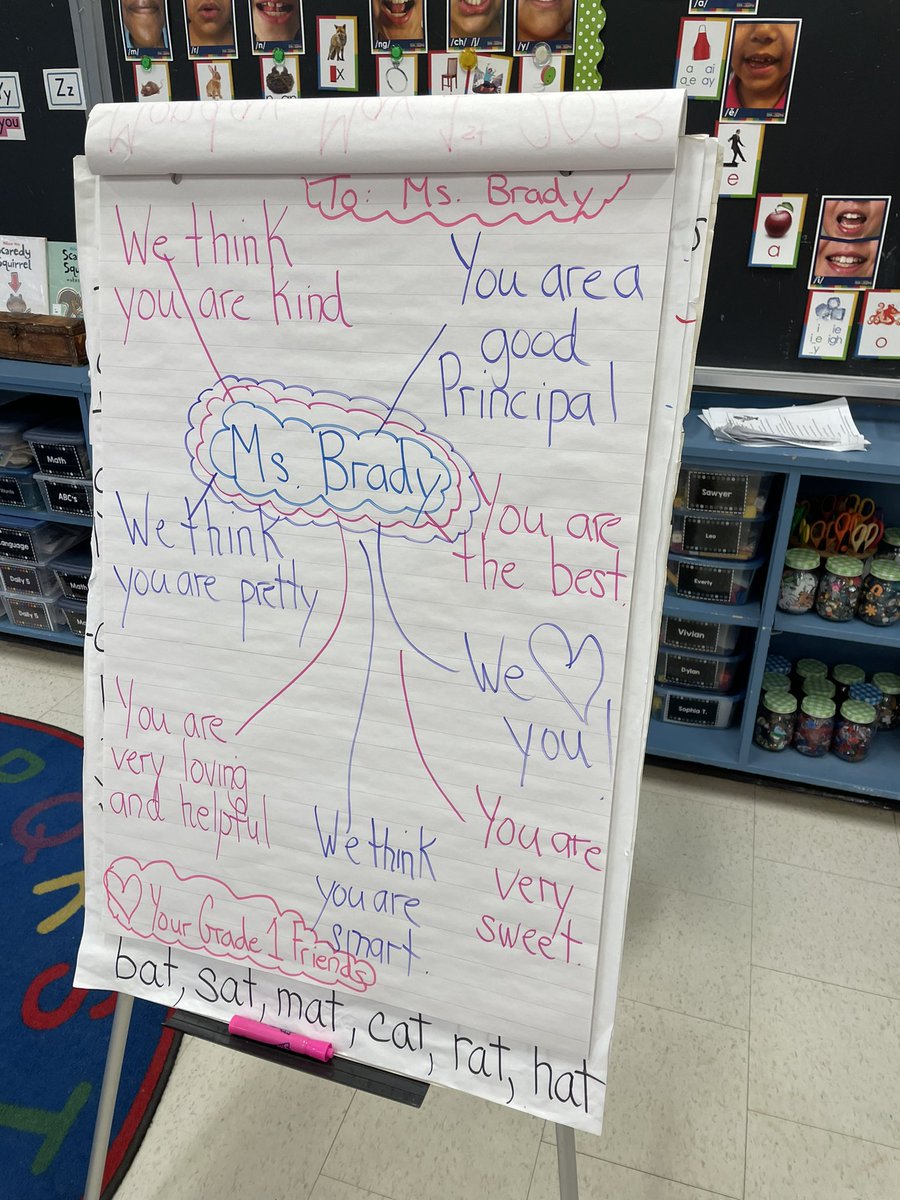 /m/
/r/
/n/
/ng/
/ch/ /j/
/y/
/a/
x
a ai
a_e ay
/ĕ/
e
a
/ī/
i ie
i_e igh
y
o
Yy
Zz
you
Scaredy
Squirrel
To: Ms. Brady
We think
you are kind
You are a
good
Principal
Ms. Brady
We think
you are pretty
You are
the best.
We ♡
you!
You are
very loving
and helpful
We think
you are
smart.
You are
very
sweet.
♡ Your Grade 1 Friends
bat, sat, mat, cat, rat, hat
Math
ABC's
Words
Language
Daily 5
Daily 5
Sawyer
Leo
Everly
Vivian
Dylan
Sophia T.